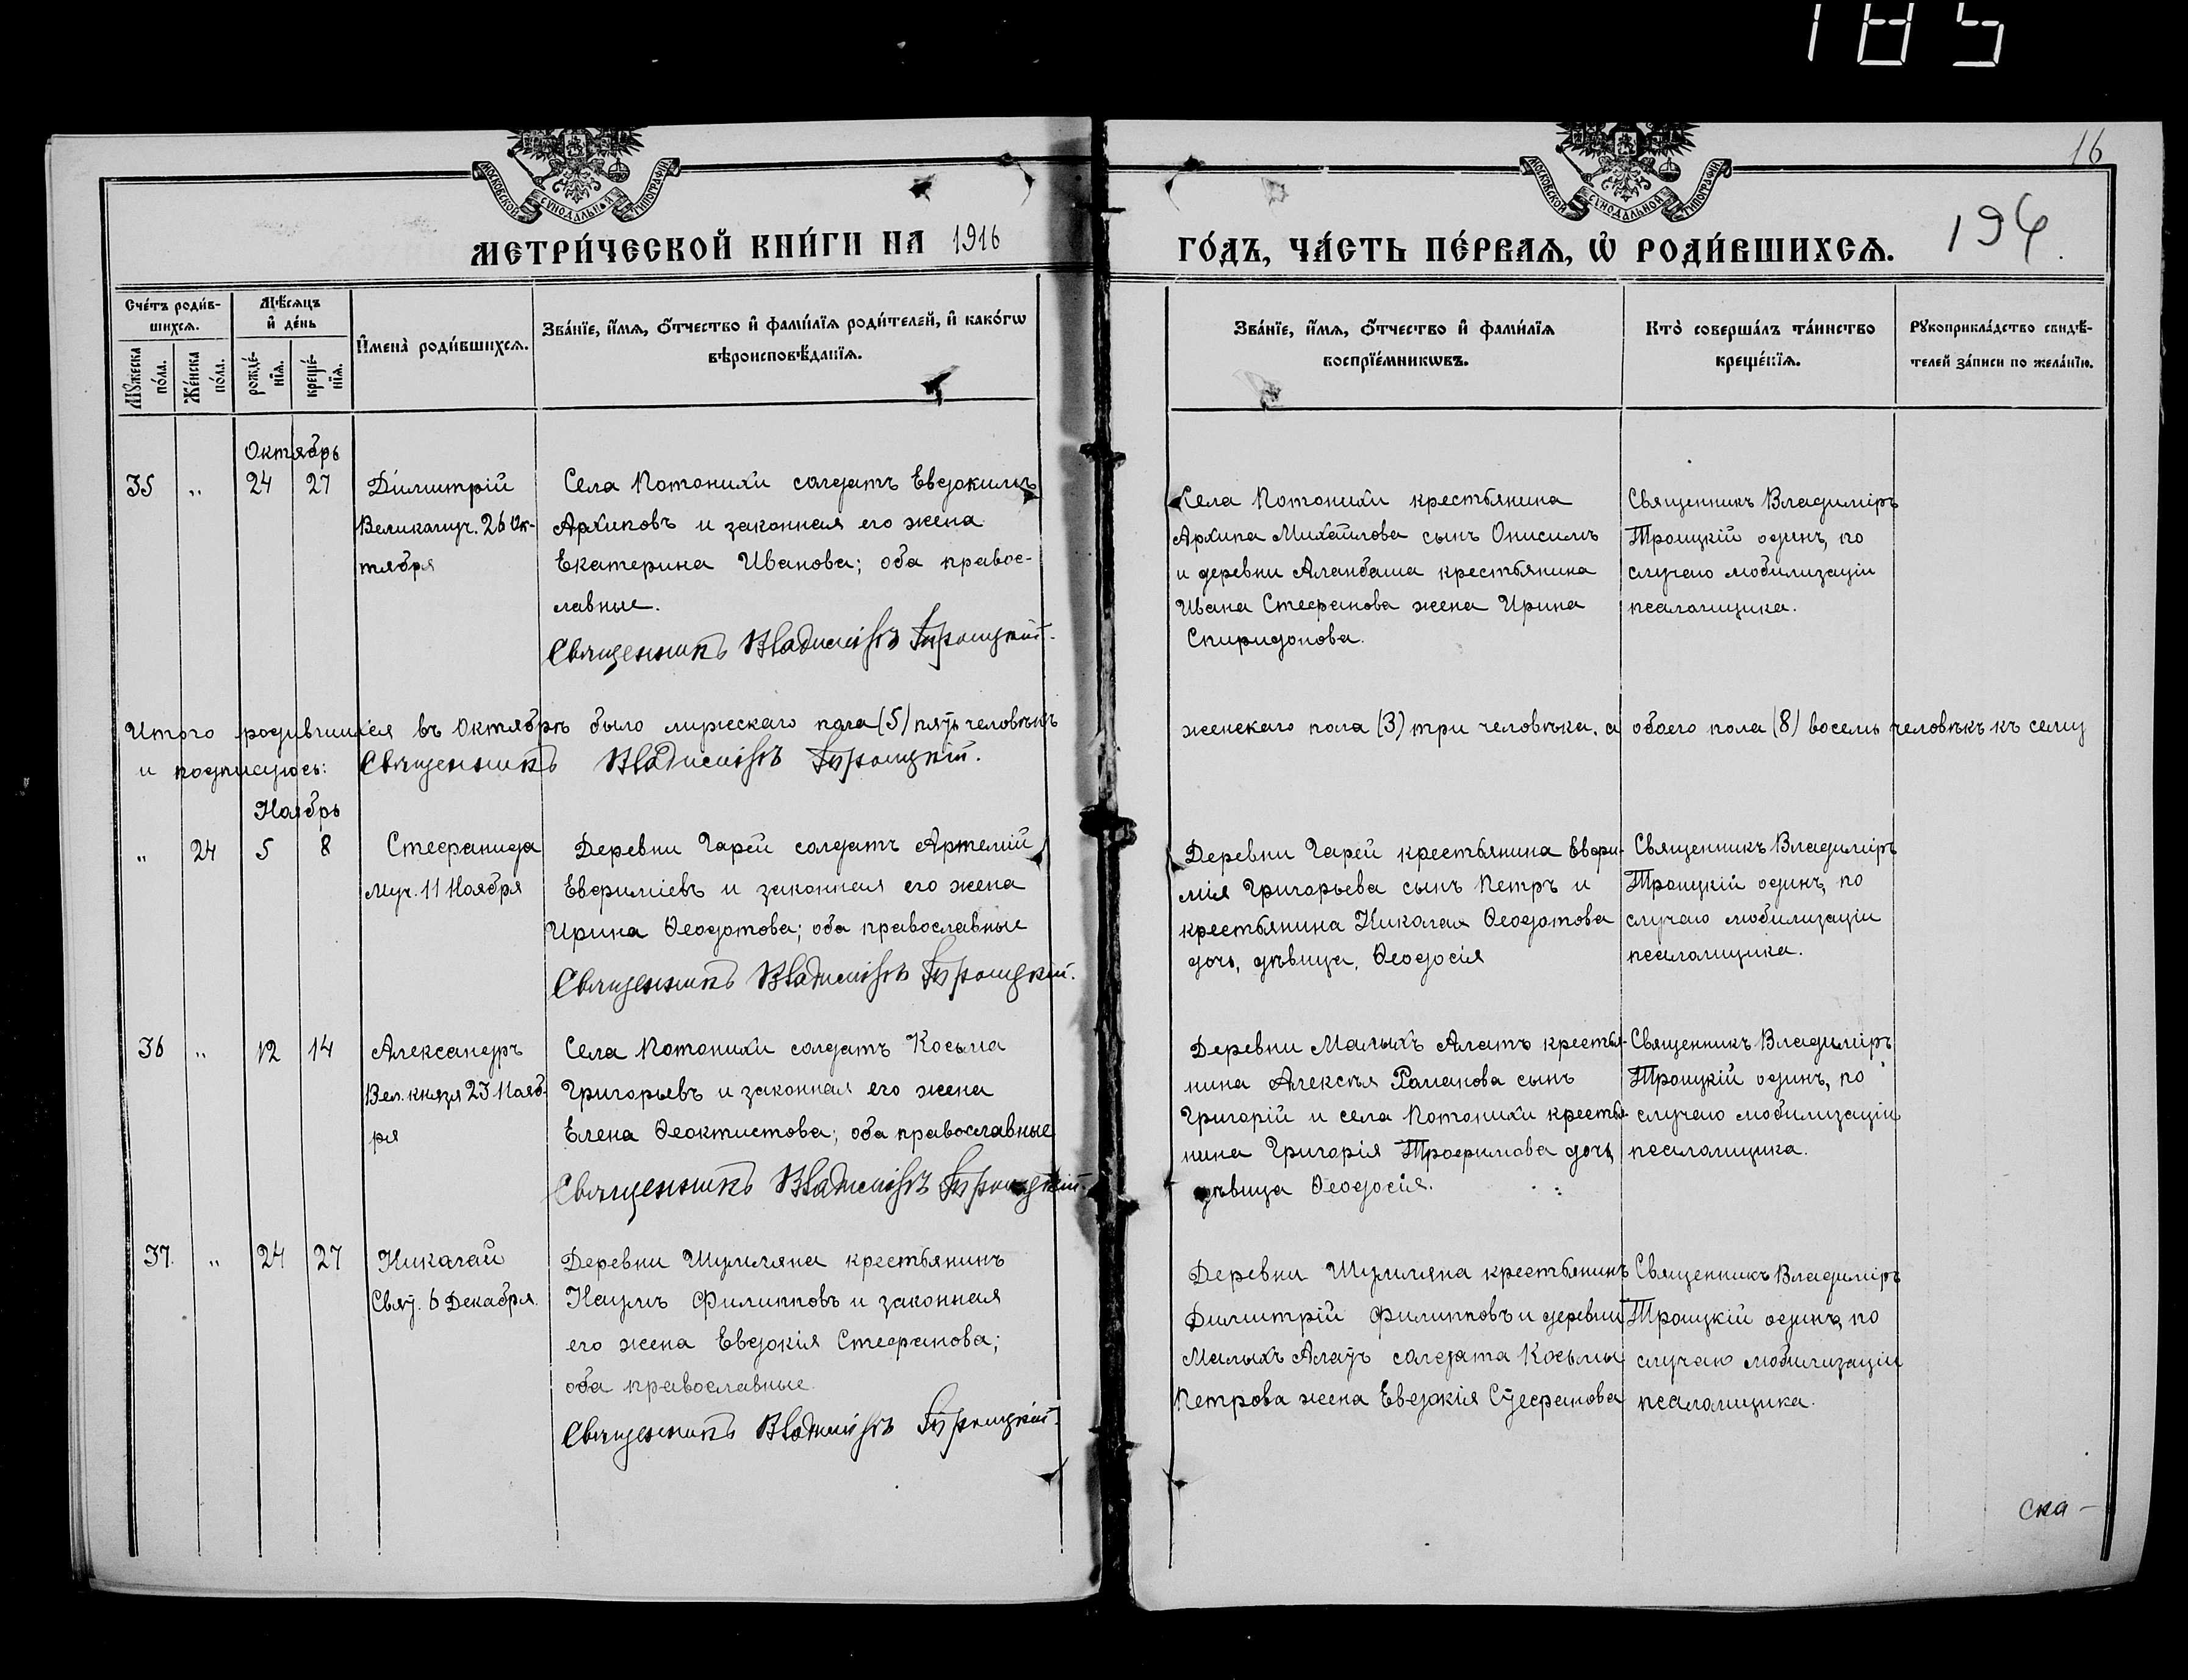 185
16
МОСКОВСКОЙ СѴНОДАЛЬНОЙ ТИПОГРАФІИ
МОСКОВСКОЙ СѴНОДАЛЬНОЙ ТИПОГРАФІИ
МЕТРИ́ЧЕСКОЙ КНИ́ГИ НА 1916 ГО́ДЪ, ЧА́СТЬ ПЕ́РВАѦ, Ѡ҆ РОДИ́ВШИХСѦ.
Сче́тъ роди́в-
шихсѧ.
Мꙋ́жеска по́ла.
Же́нска по́ла.
Мѣ́сѧцъ
и҆ де́нь
рожде́-нїѧ.
креще́-нїѧ.
И҆мена̀ роди́вшихсѧ.
Зва́нїе, и҆́мѧ, ѻ҆́тчество и҆ фами́лїѧ роди́телей, и҆ како́гѡ
вѣроисповѣ́данїѧ.
Зва́нїе, и҆́мѧ, ѻ҆́тчество и҆ фами́лїѧ
воспрїе́мникѡвъ.
Кто̀ соверша́лъ та́инство
креще́нїѧ.
Рꙋкоприкла́дство свидѣ́-
телей за́писи по жела́нїю.
Октябрь
35 „ 24 27
Димитрій
Великомуч. 26 Ок-
тября
Села Потонихи солдатъ Евдокимъ
Архиповъ и законная его жена
Екатерина Иванова; оба правос-
лавные.
Священникъ Владиміръ Троицкій.
Села Потонихи крестьянина
Архипа Михайлова сынъ Онисимъ
и деревни Аланбаша крестьянина
Ивана Стефанова жена Ирина
Спиридонова.
Священникъ Владиміръ
Троицкій одинъ, по
случаю мобилизаціи
псаломщика.
Итого родившихся въ Октябрѣ было мужескаго пола (5) пять человѣкъ женскаго пола (3) три человѣка, а обоего пола (8) восемь человѣкъ къ сему
и подписуюсь: Священникъ Владиміръ Троицкій.
Ноябрь
„ 24 5 8
Стефанида
Муч. 11 Ноября
Деревни Гарей солдатъ Артемій
Евфиміевъ и законная его жена
Ирина Ѳеодотова; оба православные
Священникъ Владиміръ Троицкій.
Деревни Гарей крестьянина Евфи-
мія Григорьева сынъ Петръ и
крестьянина Николая Ѳеодотова
дочь, дѣвица, Ѳеодосія
Священникъ Владиміръ
Троицкій одинъ, по
случаю мобилизаціи
псаломщика.
36 „ 12 14
Александръ
Вел. князя 23 Нояб-
ря
Села Потонихи солдатъ Косьма
Григорьевъ и законная его жена
Елена Ѳеоктистова; оба православные
Священникъ Владиміръ Троицкій.
Деревни Малыхъ Алатъ крестья-
нина Алексѣя Романова сынъ
Григорій и села Потонихи крестья-
нина Григорія Трофимова дочь,
дѣвица Ѳеодосія.
Священникъ Владиміръ
Троицкій одинъ, по
случаю мобилизаціи
псаломщика.
37. „ 24 27
Николай
Свят. 6 Декабря.
Деревни Шумляна крестьянинъ
Наумъ Филипповъ и законная
его жена Евдокія Стефанова;
оба православные.
Священникъ Владиміръ Троицкій.
Деревни Шумляна крестьянинъ
Димитрій Филипповъ и деревни
Малыхъ Алатъ солдата Косьмы
Петрова жена Евдокія Стефанова
Священникъ Владиміръ
Троицкій одинъ, по
случаю мобилизаціи
псаломщика.
ска-